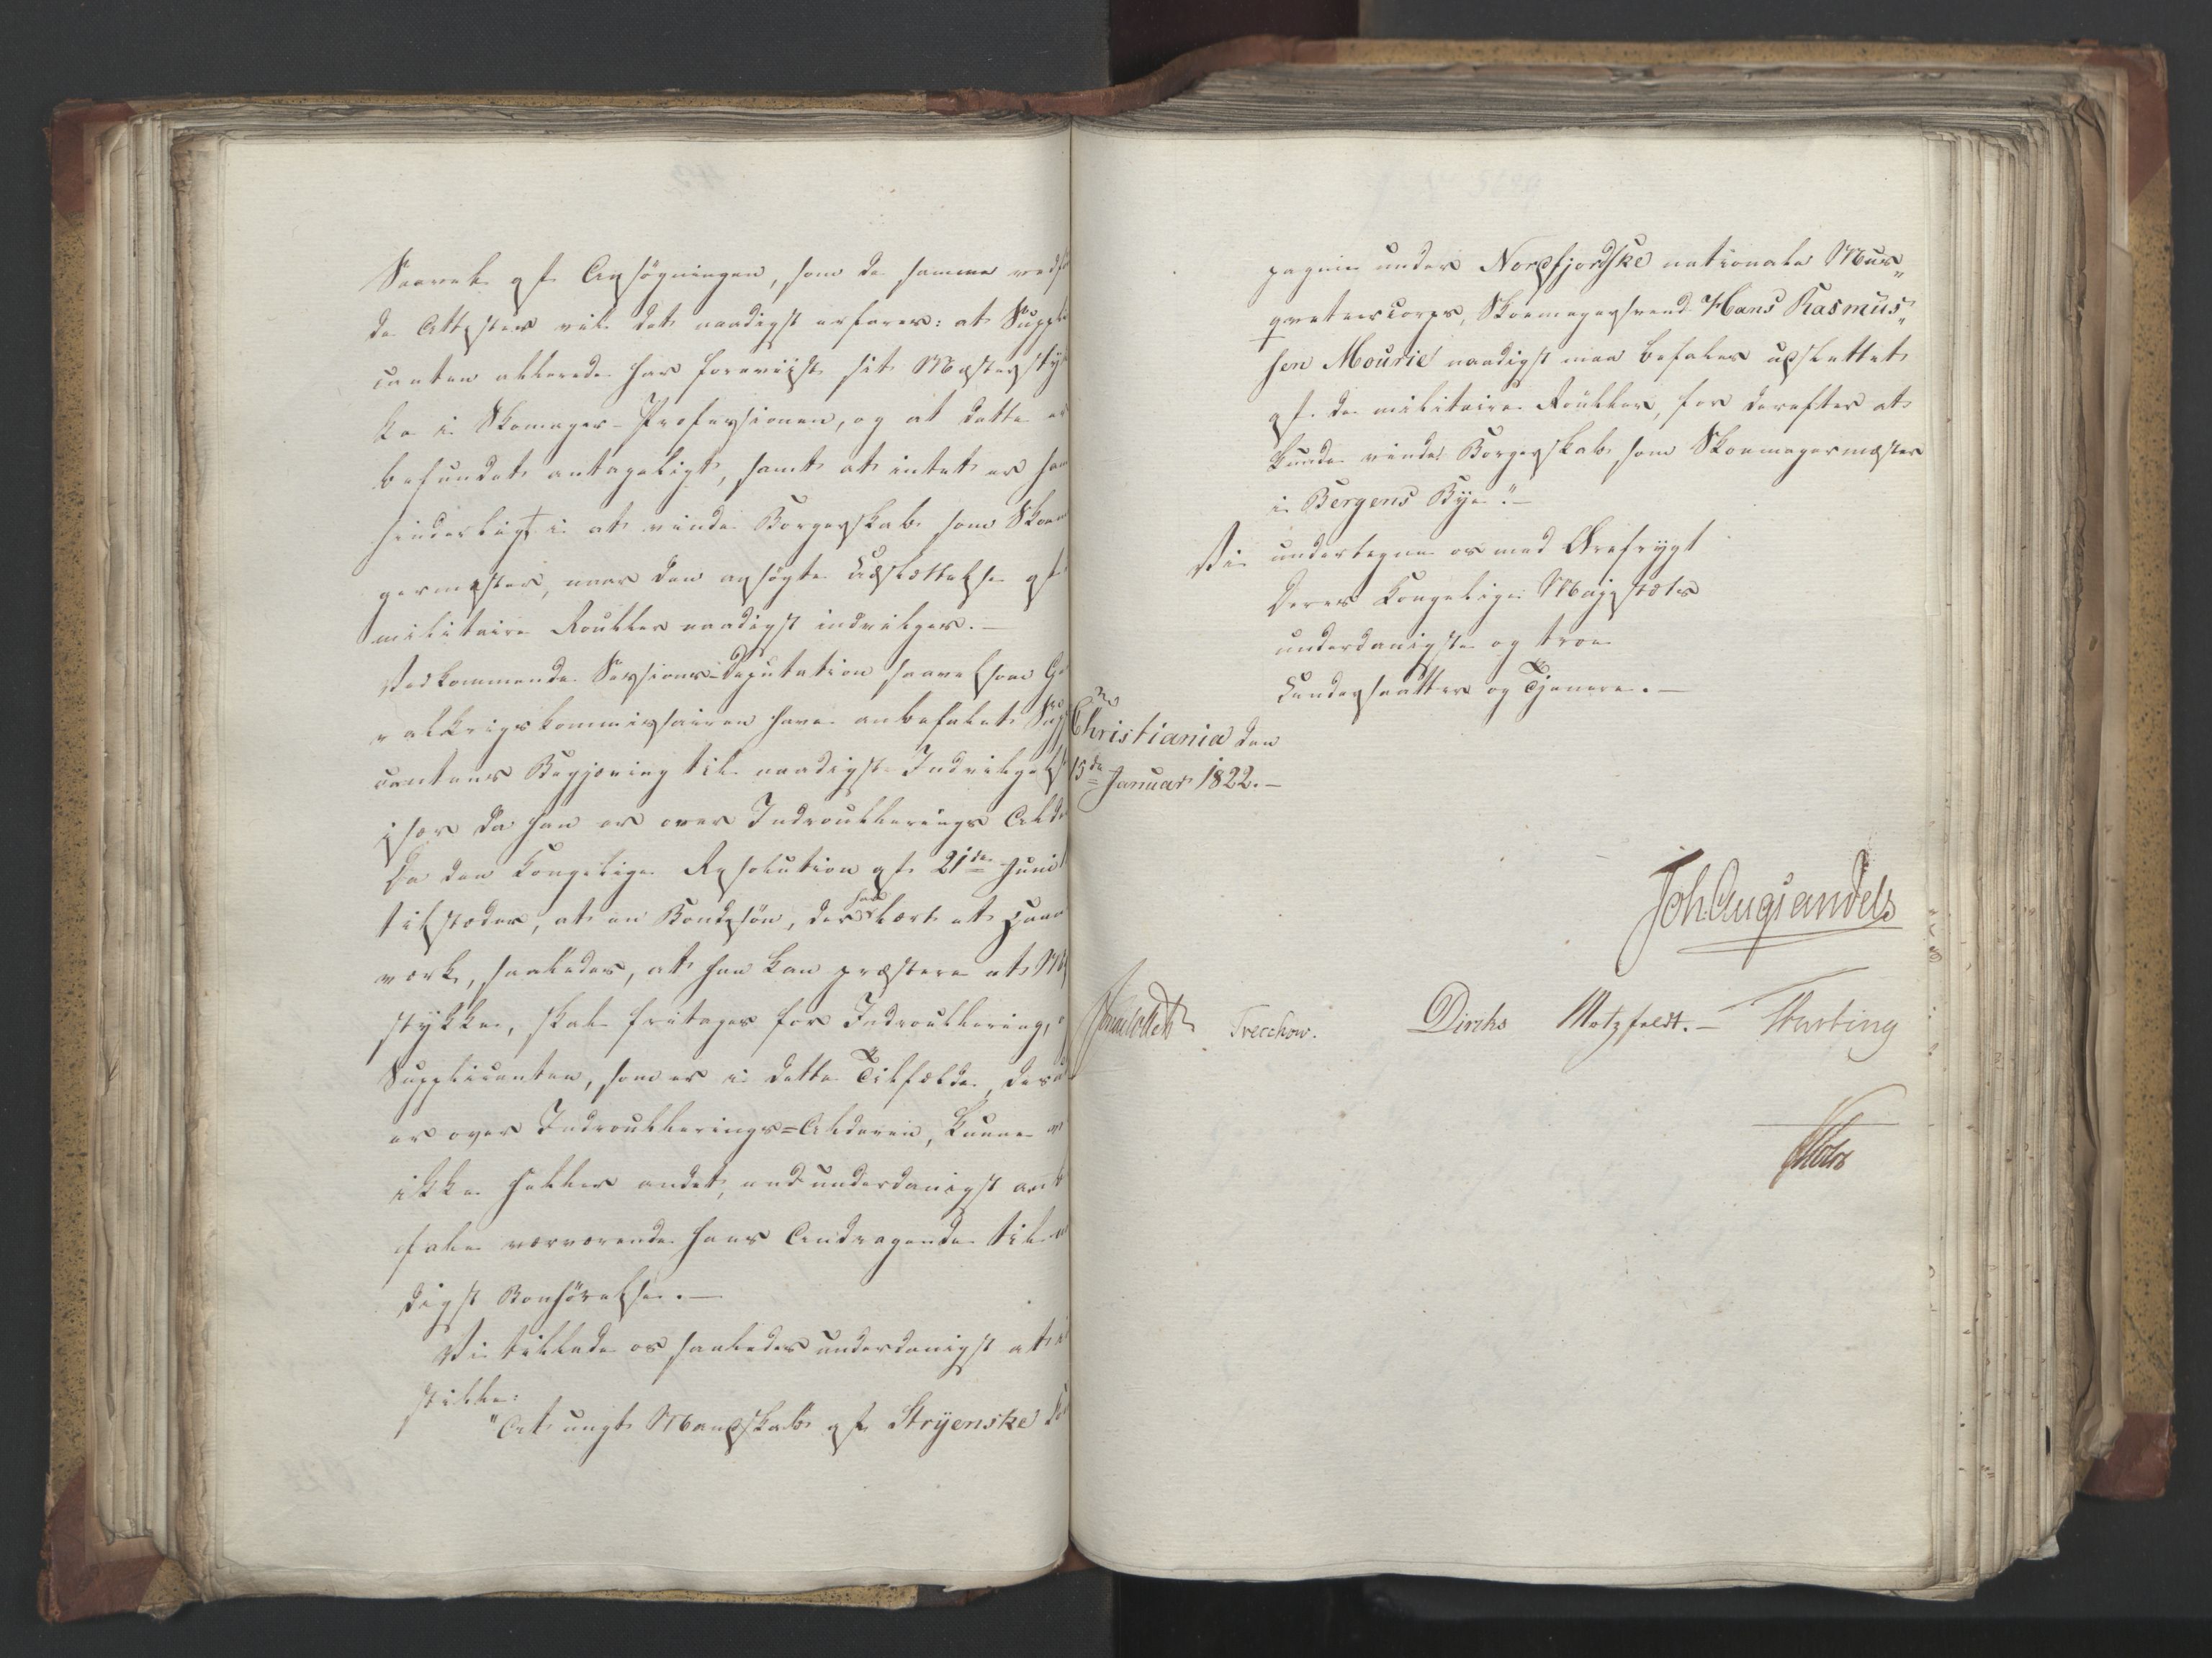 Saavel af Ansøgningen, som de samme vedfø
de Attester vil det naadigst erfares: at Suppli
canten allerede har foreviist sit Mesterstyk
ke i Skomager-Professionen, og at dette er
befundet antageligt, samt at intet er ham
hinderligt i at vinde Borgerskab som Skoma
germester, naar den ansøgte Udslettelse af
militaire Rouller naadigst indvilges.—
Vedkommende Sessions-Deputation saavelsom Ge
ralkrigskommissairen have anbefalet Suppl
cantens Begjæring til naadigst Indvilgelse
især da han er over Indroulleringsalde
Da den Kongelige Resolution af 21de Juni
tilstæder, at en Bondesøn, der har lært et Haand
værk, saaledes, at han kan præstere et Me
stykke, skal fritages for Indroullering,
Supplicanten, som er i dette Tilfælde, des
er over Indroullerings=Alderen, kunne vi
ikke heller andet, end underdanigst anb
fale nærværende hans Andragende til
digst Bønhørelse.—
Vi tillade os saaledes underdanigst at
stille:
"At ungt Mandskab af Stryenske Co
pagnie under Nordfjordske nationale Mus„
qveteercorps, Skoemagersvend Hans Rasmus„
sen Mourie naadigst maa befales udslettet
af de militaire Roüller, for derefter at
kunde vinde Borgerskab som Skoemagermester
i Bergens Bye."—
Vi undertegne os med Ærefrygt
Deres Kongelige Majestæts
underdanigste og troe
Undersaatter og Tjenere.—
Christiania den
15de Januar 1822.—
Joh. Aug. Sandels
Treschow.
Diriks
Motzfeldt.—